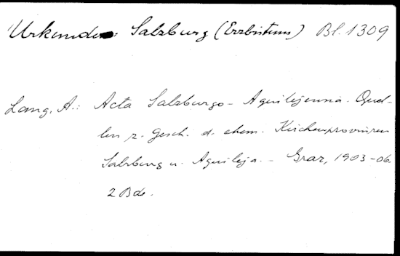 Urkunden Salzburg (Erzbistum) Bl. 1309
Lang, A.: Acta Salzburgo-Aquilejensia. Quel-
len z. Gesch. d. ehem. Kirchenprovinzen
Salzburg u. Aquileja. - Graz, 1903-06.
2 Bde.